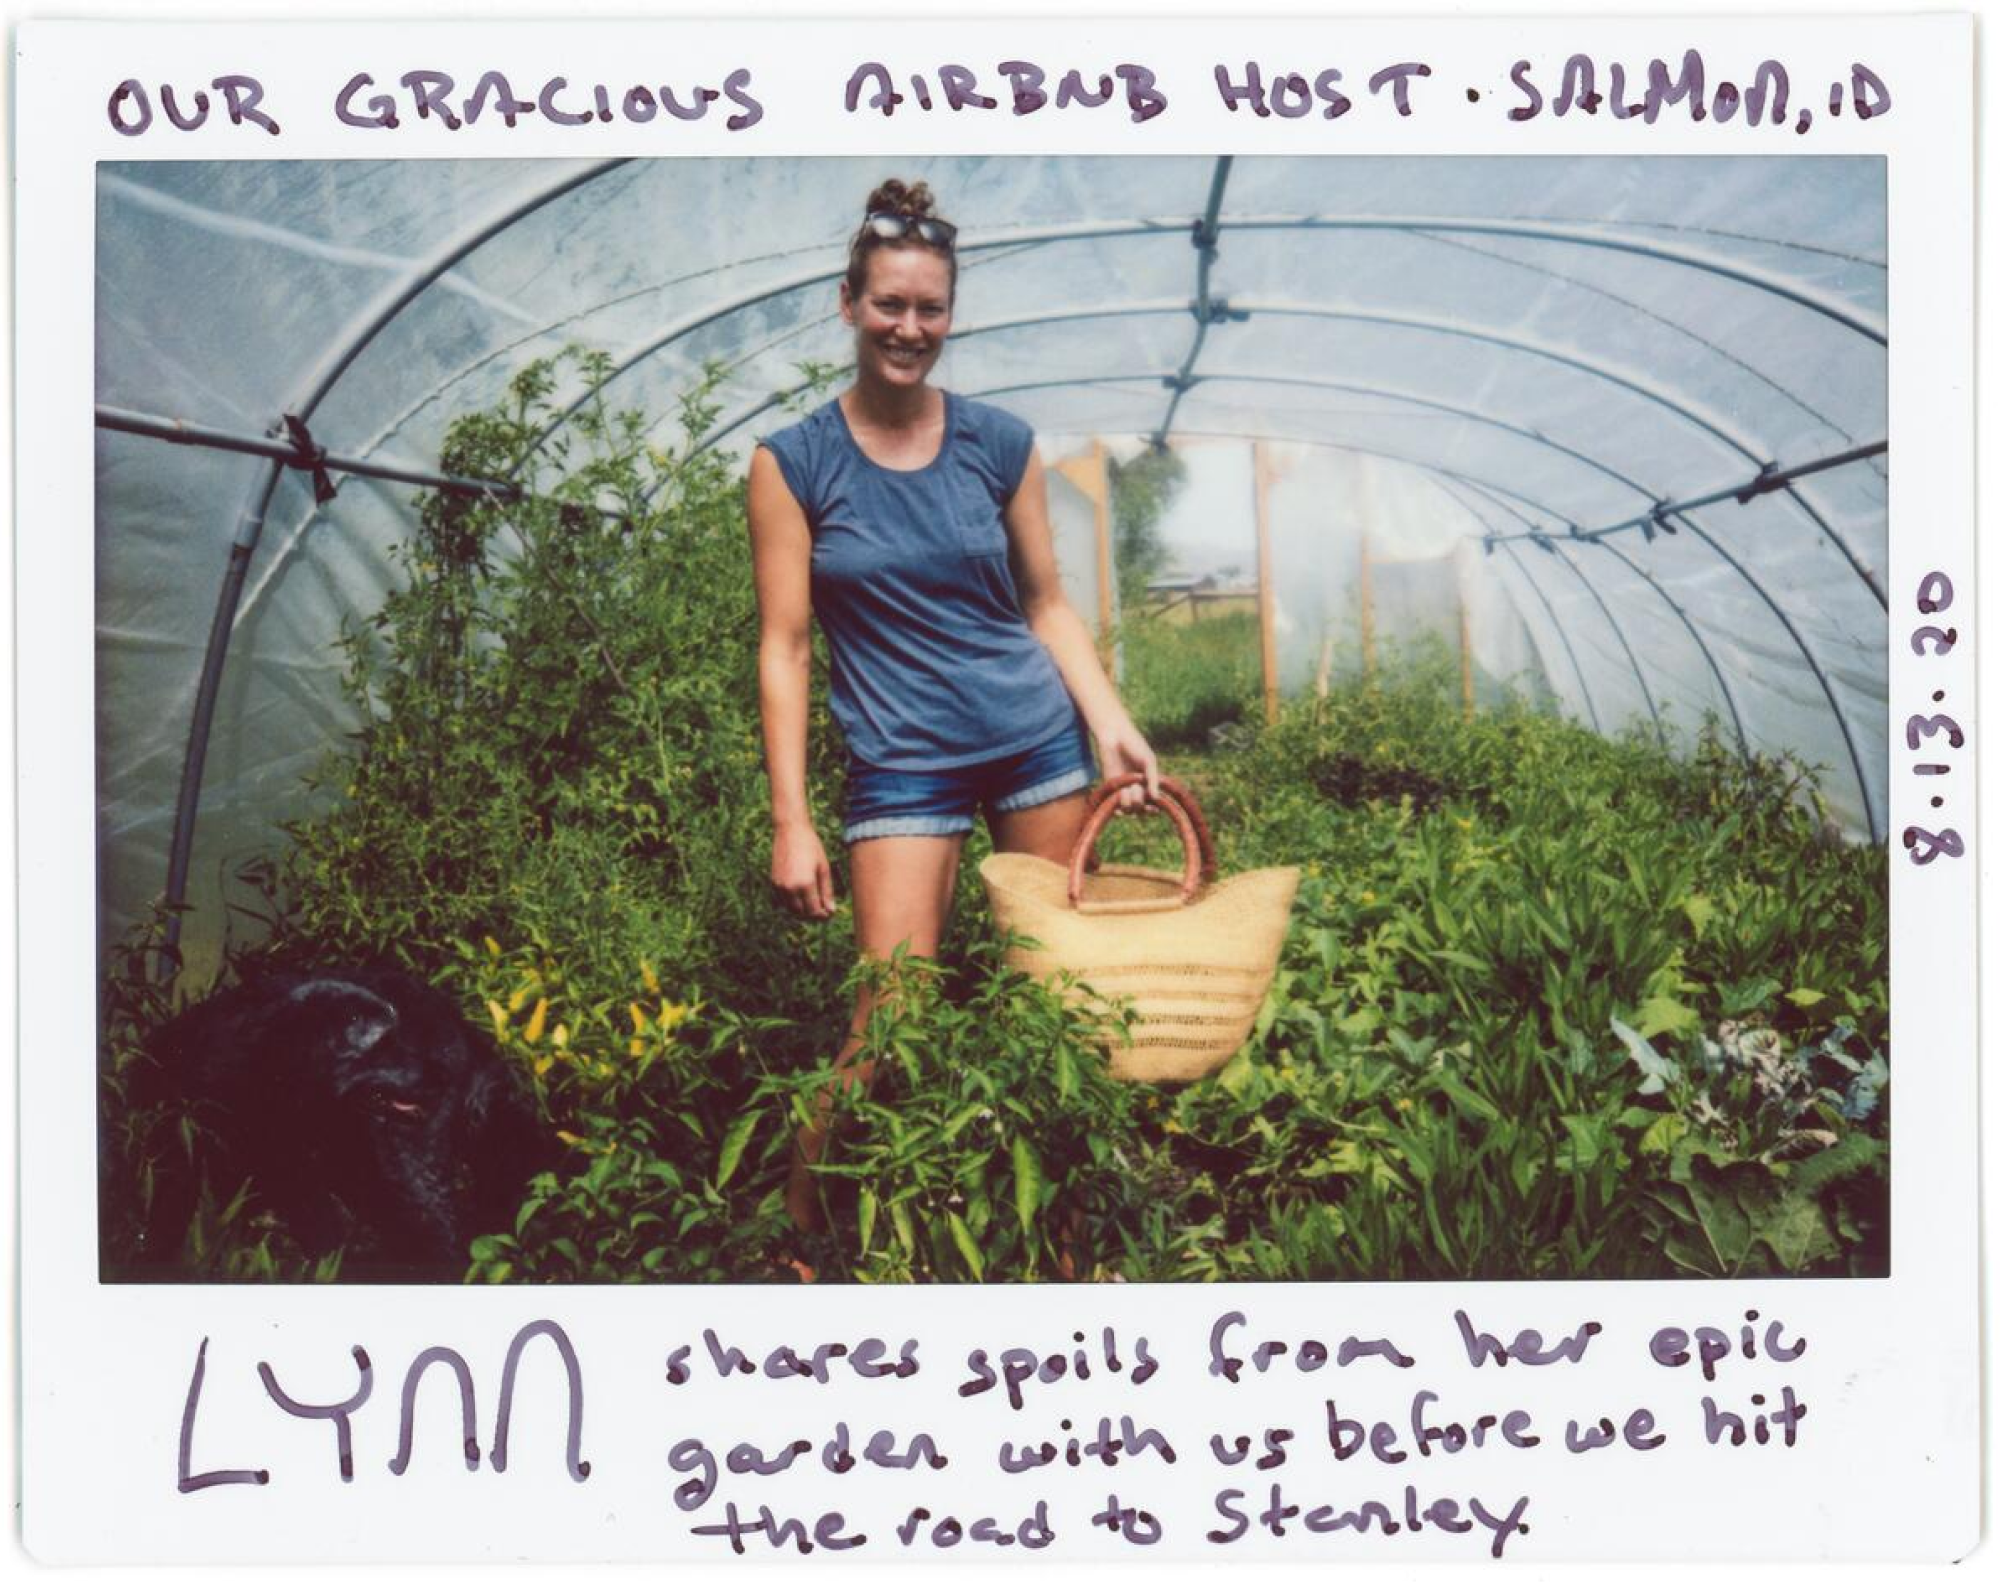 OUR GRACIOUS AIRBNB HOST · SALMON, ID
8·13·20
LYNN
shares spoils from her epic
garden with us before we hit
the road to Stanley.